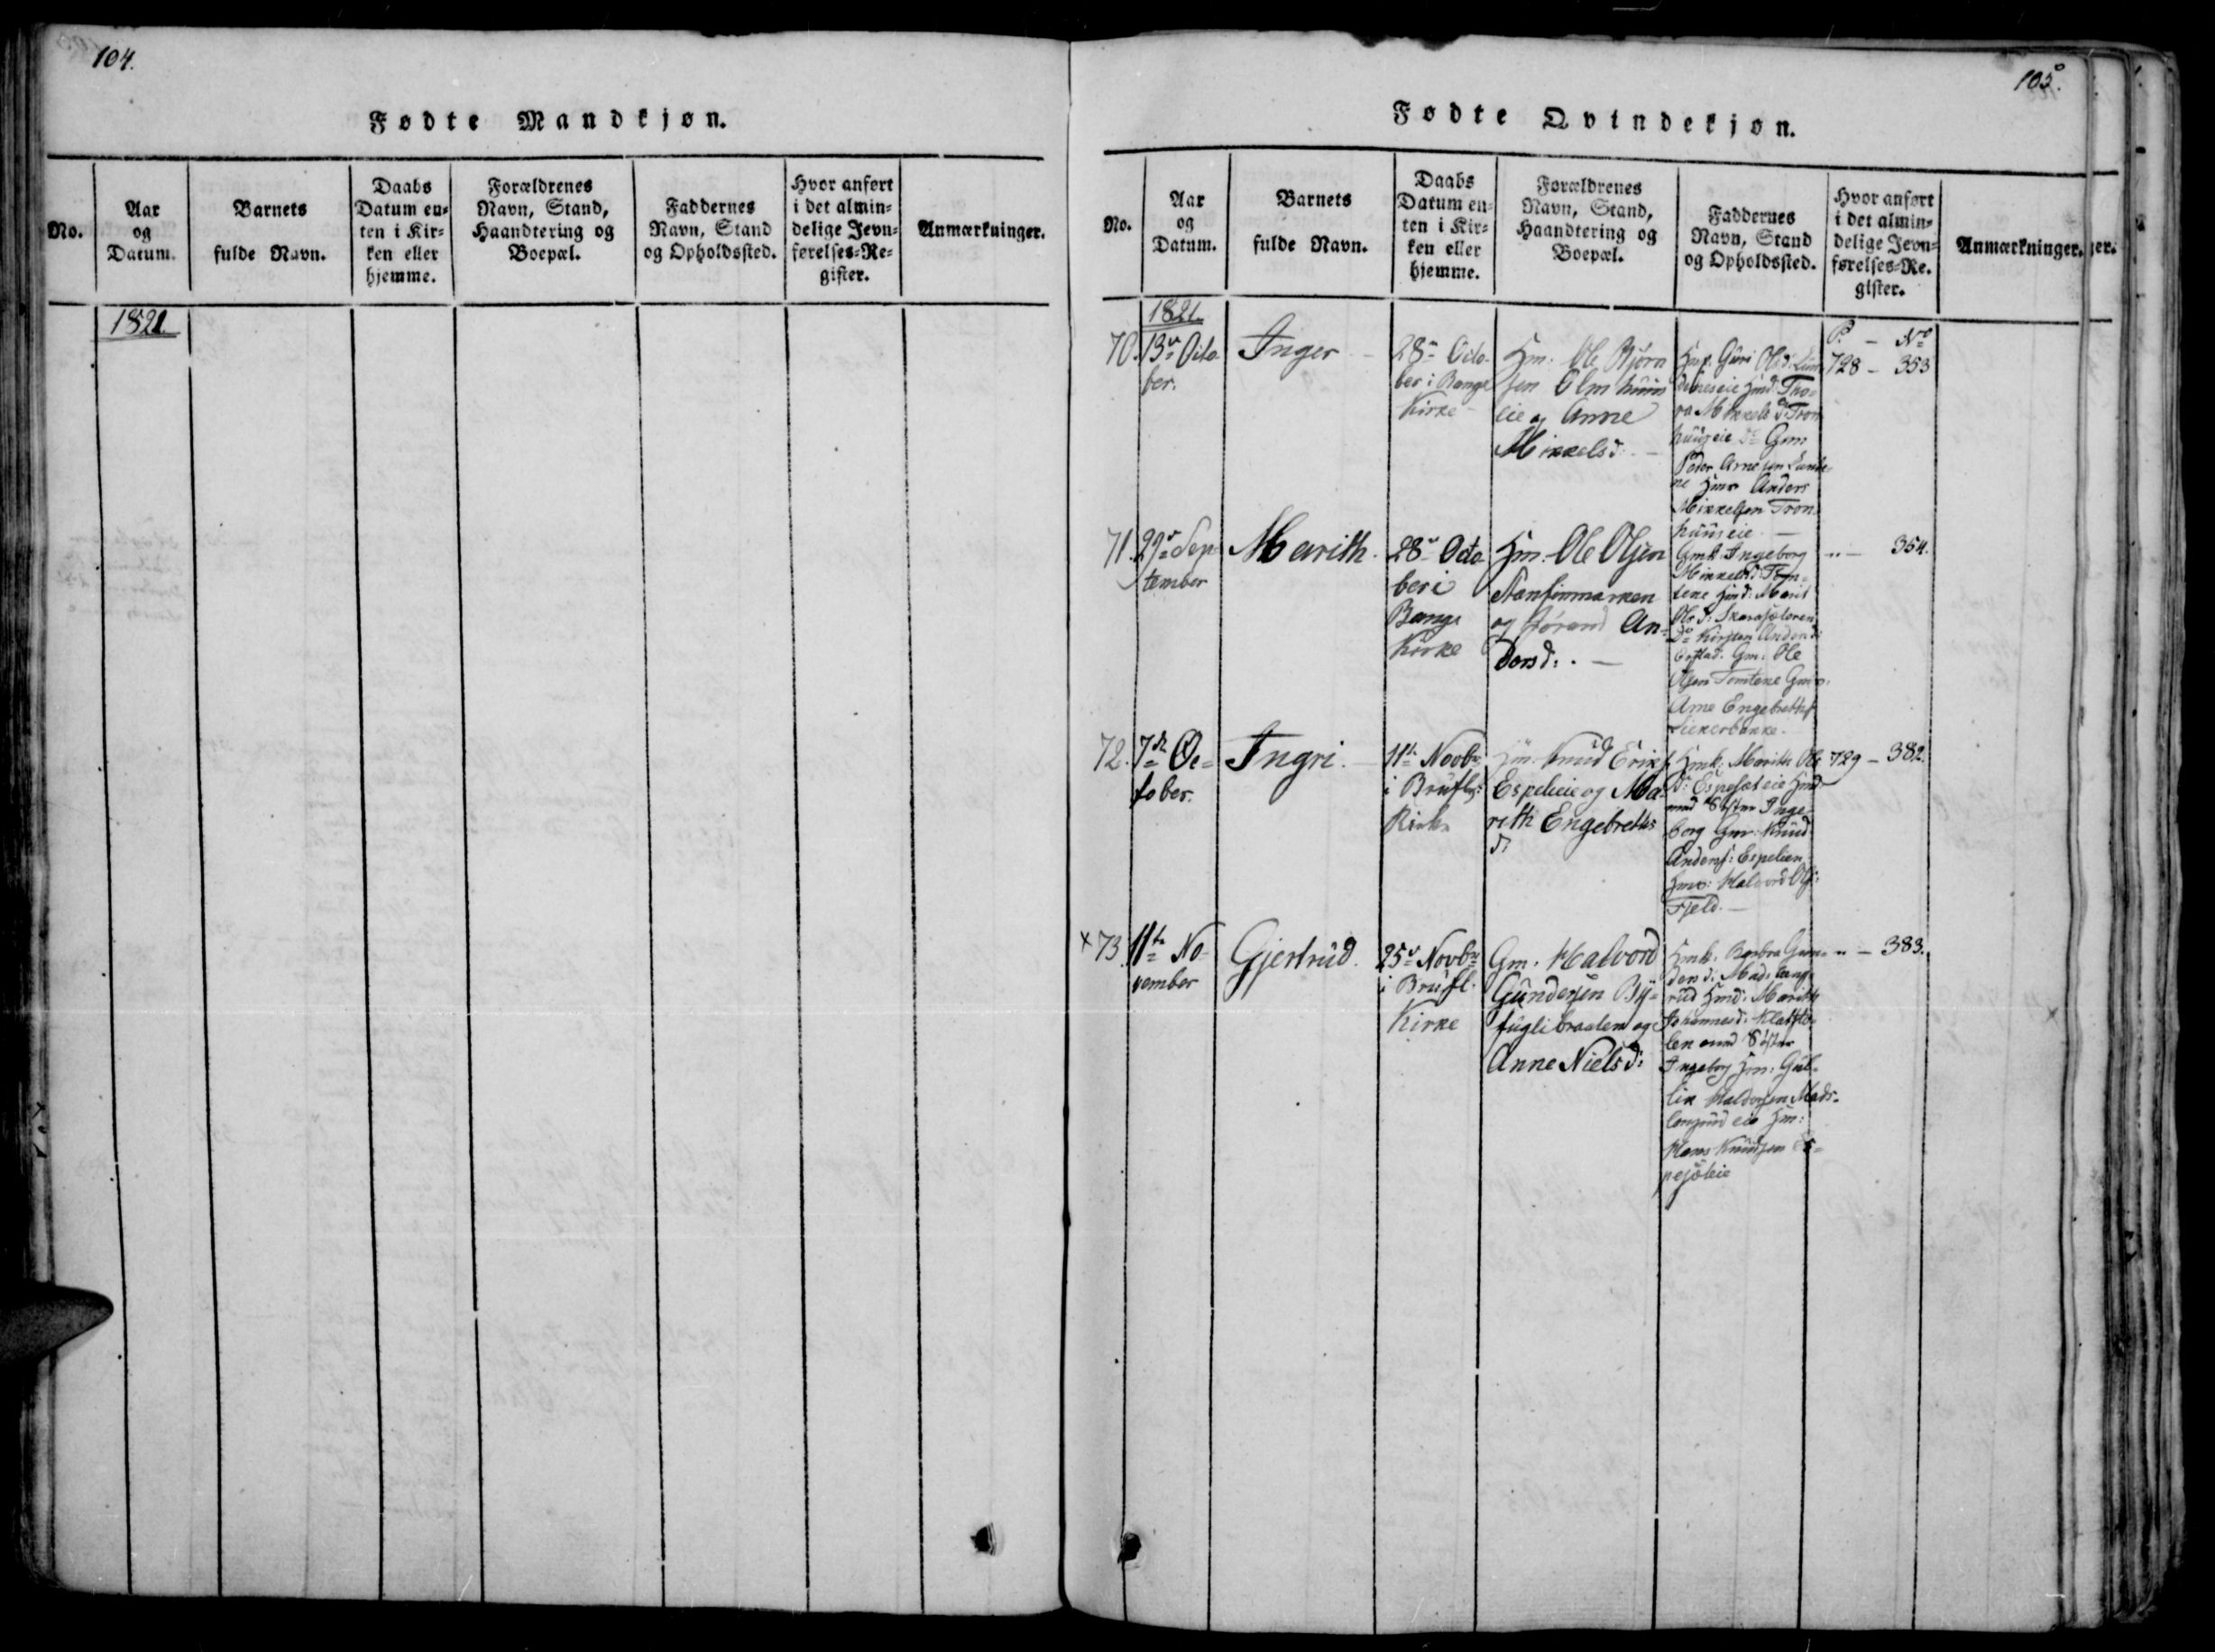 104.
Fødte Mandkjøn.
No.
Aar
og
Datum.
Barnets
fulde Navn.
Daabs
Datum en-
ten i Kir-
ken eller
hjemme.
Forældrenes
Navn, Stand,
Haandtering og
Boepæl.
Faddernes
Navn, Stand
og Opholdssted.
Hvor anført
i det almin-
delige Jevn-
førelses-Re-
gister.
Anmærkninger.
1821.
105.
Fødte Qvindekjøn.
No.
Aar
og
Datum.
Barnets
fulde Navn.
Daabs
Datum en-
ten i Kir-
ken eller
hjemme.
Forældrenes
Navn, Stand,
Haandtering og
Boepæl.
Faddernes
Navn, Stand
og Opholdssted.
Hvor anført
i det almin-
delige Jevn-
førelses-Re-
gister.
Anmærkninger.
er.
1821.
70.
13de Octo-
ber.
Inger
28de Octo-
ber i Bangs
Kirke
Hm. Ole Bjørn
sen Olmhuus
eie og Anne
Mikkelsd.
Guri Olsd.
Tho-
ra Mikkelsd. Tron
huuseie Do Gm
Peder Arnesen Lunde
ne Hmr Anders
Mikkelsen Tron
huuseie
P. - No
728 - 353
71.
29de Sep-
tember
Marith.
28de Octo
ber i
Bangs
Kirke
Hm. Ole Olsen
og Jørand An-
dersd:.
Gmk. Ingeborg
Mikkelsd: Tom-
tene Hmd: Marit
Ols d:
Do Kirsten Andersd:
Gm: Ole
Olsen Tomtene Gm:
Arne Engebretts:
" - 354.
72.
7de Oc-
tober.
Ingri.
11te Novbr
i Brufl:
Kirke
Hm. Knud Eriks:
Espelieie og Ma-
rith Engebretts
d:
Hmk. Marith Ols
d: Espesæt eie Hmd
med Søster Inge-
borg Gm: Knud
Anders: Espelien
Hmr: Halvord Ols:
Fjeld.
729 - 382.
x 73.
11te No-
vember
Gjertrud.
25de Novbr
i Brufl.
Kirke
Gm. Halvord
Gundersen By-
fuglibraaten og
Anne Nielsd:
Hmk. Barbra Gun-
der d: Madslang-
rud Hmd: Marith
Johannesd: Klatsto-
len med Søster
Ingeborg Hm: Gul-
lik Haldorsen Mads-
langrud eie Hm:
Hans Knudsen Es-
pesæteie
" - 383.
x